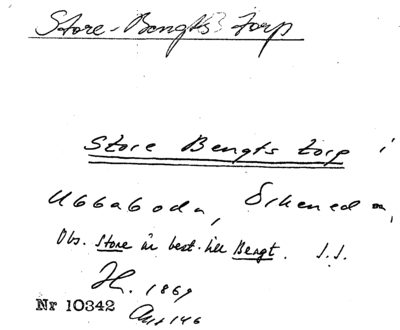 Store-Bengts Torp
Store Bengts torp i
Ubbaboda,
Obs. Store är best. till Bengt. J.J.
1869
Nr 10342
146